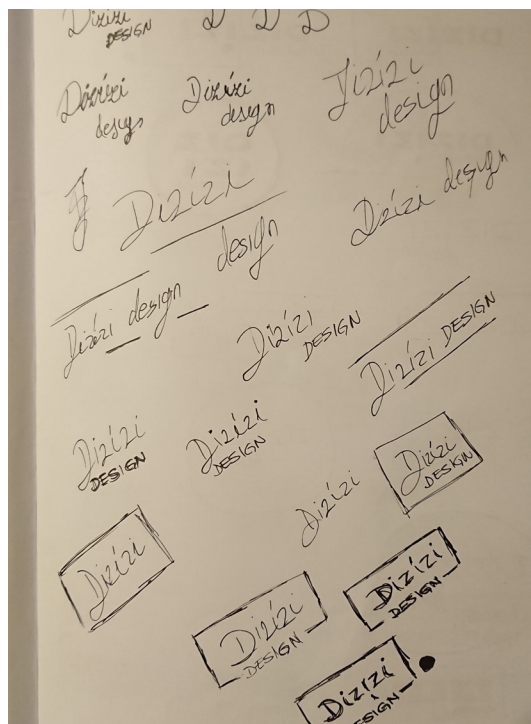 Dizízi
DESIGN
D D D
Dizízi
design
Dizízi
design
Dizízi
design
Dizízi
design
Dizízi design
Dizízi design
Dizízi
DESIGN
Dizízi DESIGN
Dizízi
DESIGN
Dizízi
DESIGN
Dizízi
Dizízi
DESIGN
Dizízi
Dizízi
DESIGN
Dizízi
DESIGN
Dizízi
DESIGN